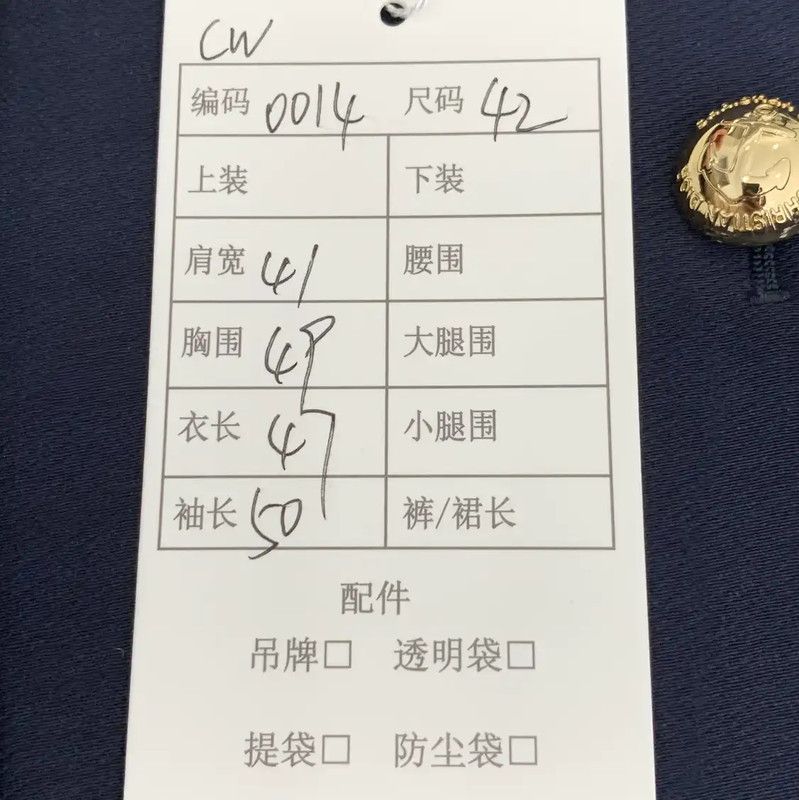 CW
编码 0014 尺码 42
上装 下装
肩宽 41 腰围
胸围 49 大腿围
衣长 47 小腿围
袖长 50 裤/裙长
配件
吊牌□ 透明袋□
提袋□ 防尘袋□
CHRISTIAN DIOR